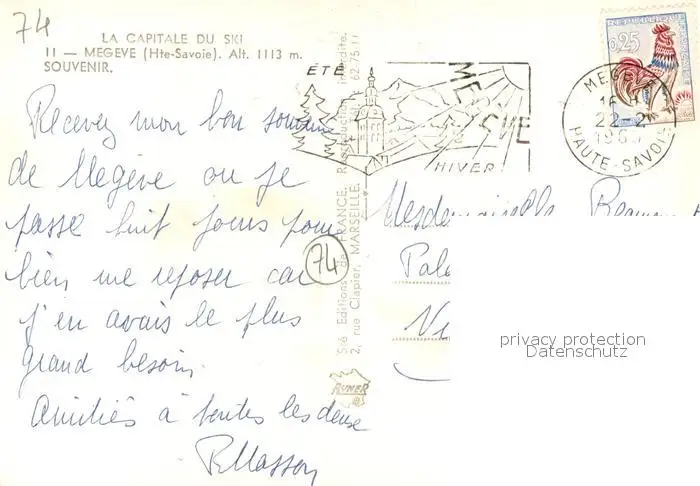 74
LA CAPITALE DU SKI
11 — MEGEVE (Hte-Savoie). Alt. 1113 m.
SOUVENIR.
Recevez mon bon souvenir
de Megève où je
passe huit jours pour
bien me reposer car
j'en avais le plus
grand besoin
Amitiés à toutes les deux
R Masson
74
Sté Editions de FRANCE. Reproduction interdite.
2, rue Clapier, MARSEILLE. 62-75-11
RUNER
ÉTÉ
MEGÈVE
HIVER
0,25
MEGEVE
16 H
22-2
HAUTE-SAVOIE
Mesdemoiselles
privacy protection
Datenschutz